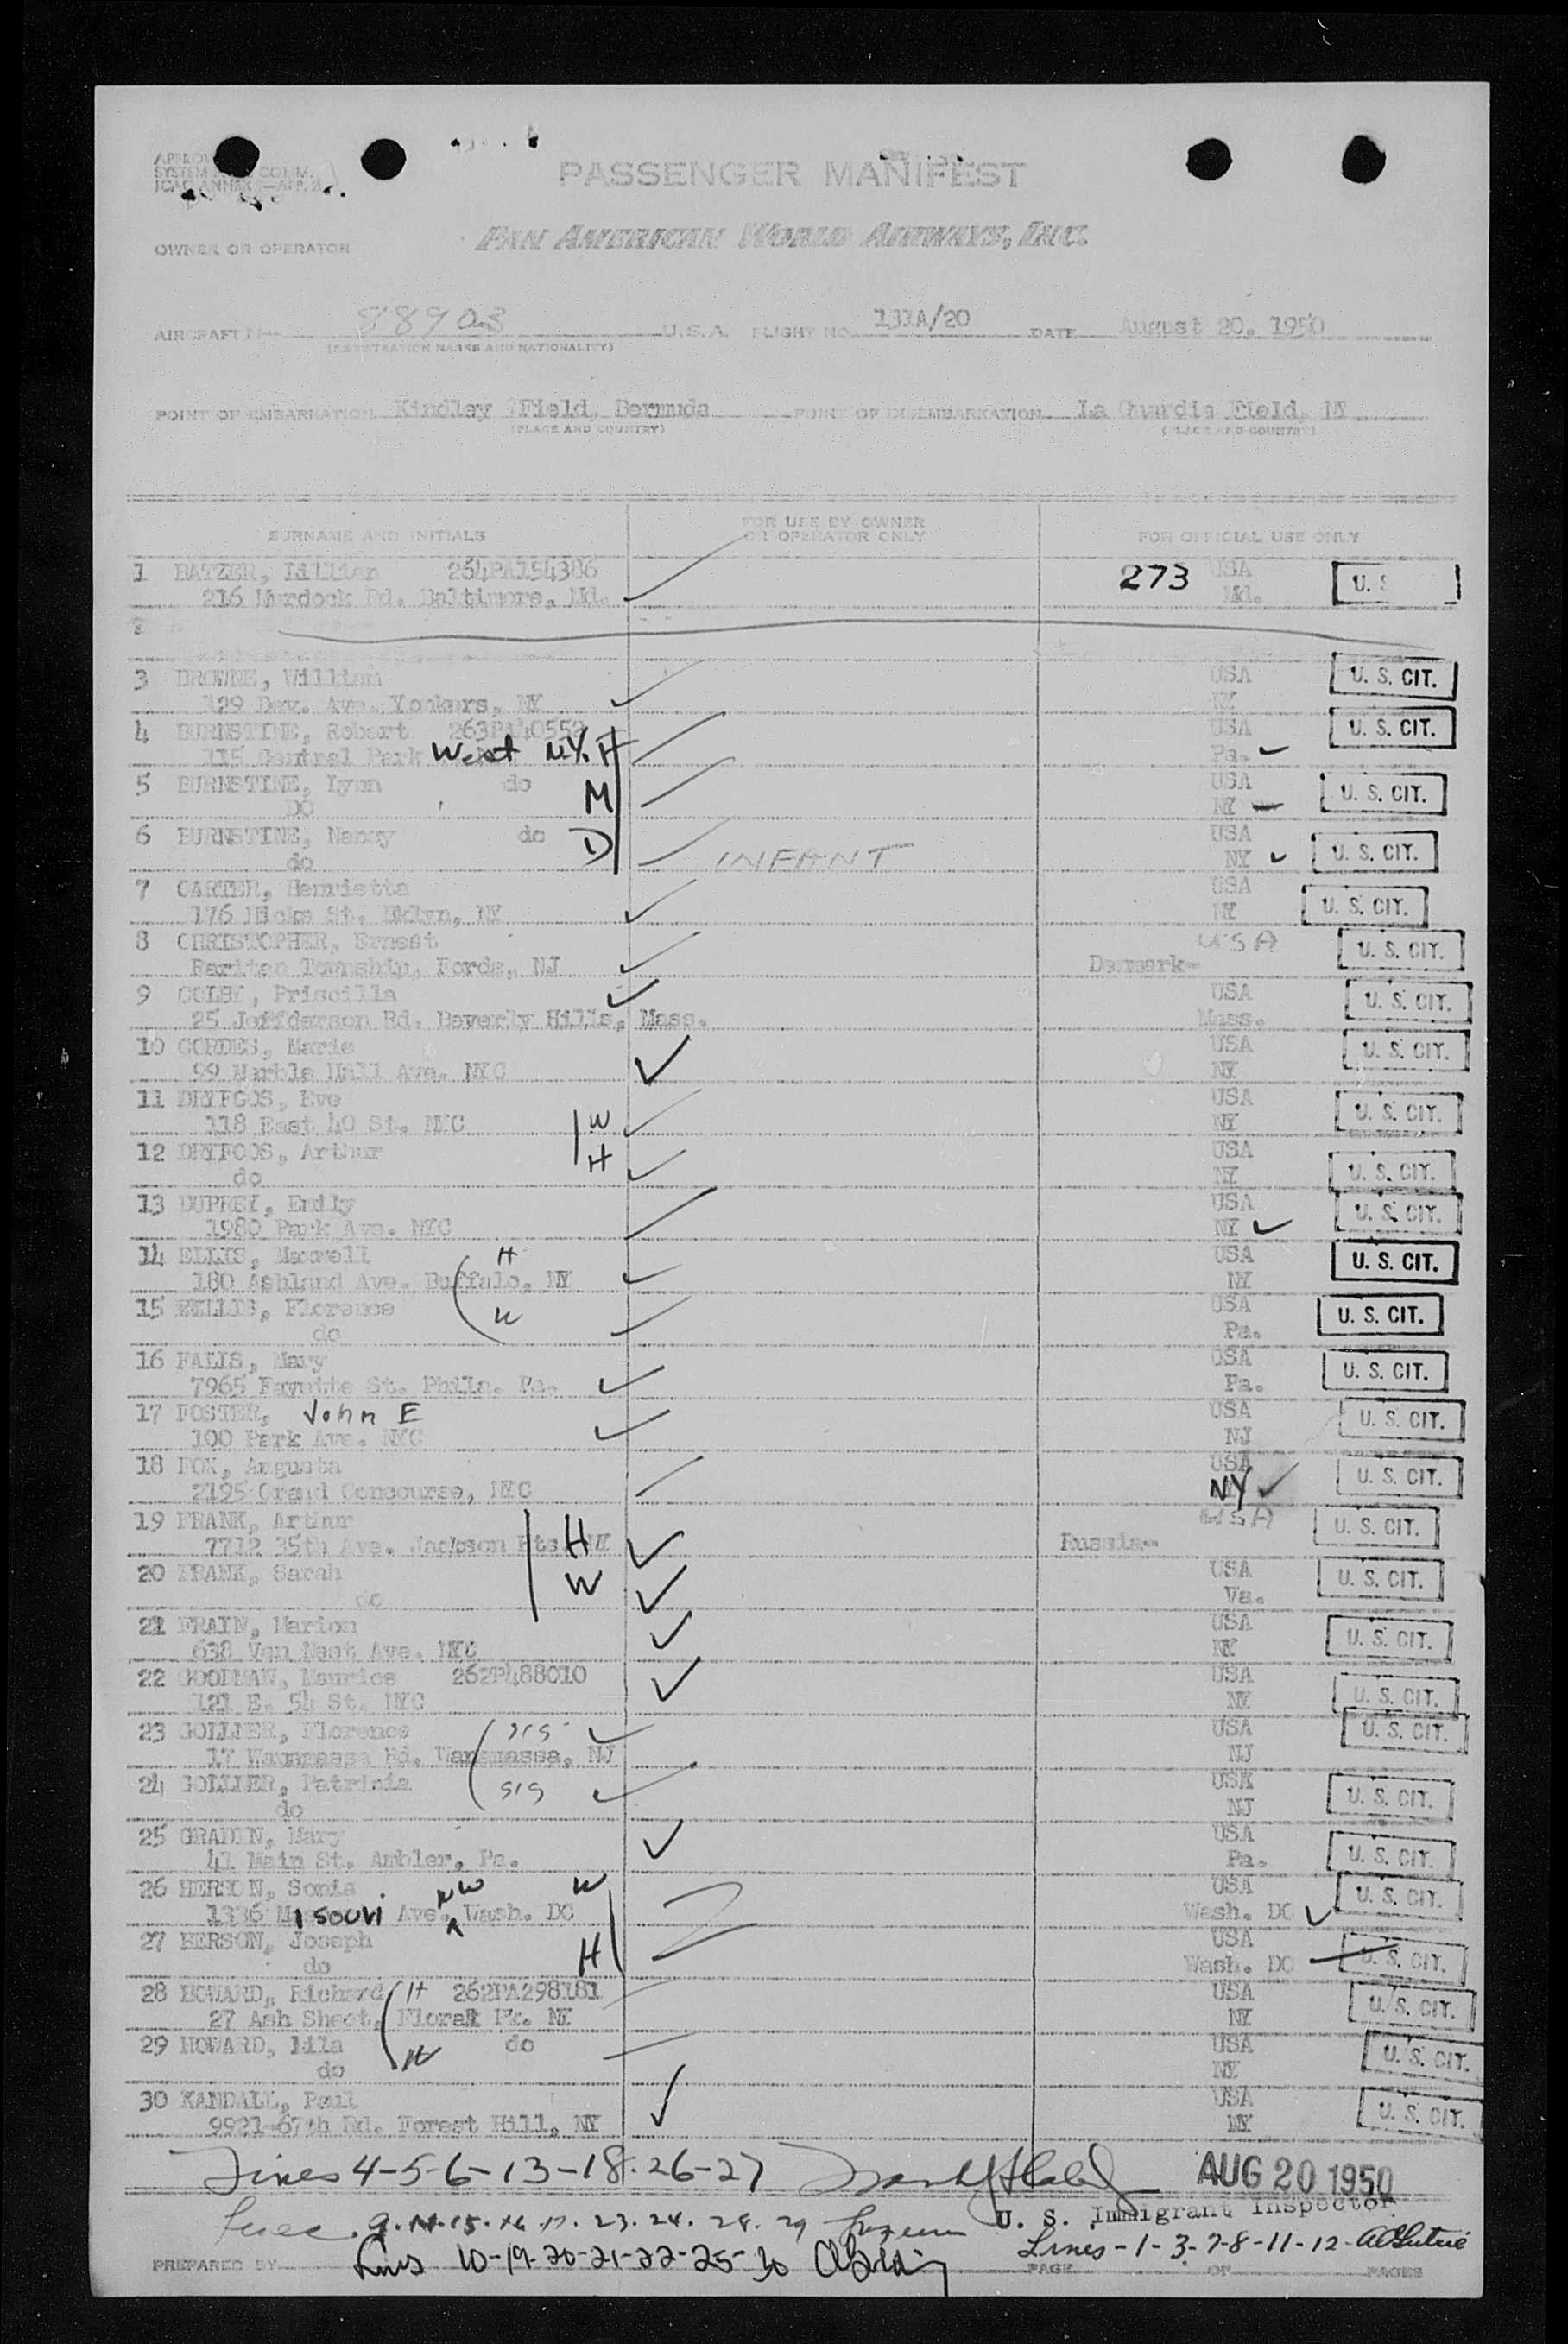 PASSENGER MANIFEST
PAN AMERICAN WORLD AIRWAYS, INC.
OWNER OR OPERATOR
AIRCRAFT N 88903 U.S.A. FLIGHT NO. 131A/20 DATE August 20, 1950
(REGISTRATION MARKS AND NATIONALITY)
POINT OF EMBARKATION Kindley Field, Bermuda POINT OF DISEMBARKATION La Guardia Field, NY
(PLACE AND COUNTRY) (PLACE AND COUNTRY)
SURNAME AND INITIALS FOR USE BY OWNER OR OPERATOR ONLY FOR OFFICIAL USE ONLY
1 BATZER, Lillian 264PA154386 273 USA U.S
216 Murdock Rd. Baltimore, Md. Md.
2
3 BROWNE, William USA U. S. CIT.
129 Dev. Ave. Yonkers, NY NY
4 BURNSTINE, Robert USA U. S. CIT.
115 Central Park West NY. H Pa.
5 BURNSTINE, Lynn do M USA U. S. CIT.
DO NY
6 BURNSTINE, Nancy do D USA U. S. CIT.
do INFANT NY
7 CARTER, Henrietta USA U. S. CIT.
176 Hicks St. Bklyn, NY NY
8 CHRISTOPHER, Ernest USA U. S. CIT.
Raritan Township, Fords, NJ Denmark-
9 COLBY, Priscilla USA U. S. CIT.
25 Jeffderson Rd. Beverly Hills, Mass. Mass.
10 CORDES, Marie USA U. S. CIT.
99 Marble Hall Ave. NYC NY
11 DRYFOOS, Eve USA U. S. CIT.
118 East 40 St. NYC W NY
12 DRYFOOS, Arthur H USA U. S. CIT.
do NY
13 DUPREY, Emily USA U. S. CIT.
1980 Park Ave. NYC NY
14 ELLIS, Maxwell H USA U. S. CIT.
180 Ashland Ave. Buffalo, NY NY
15 ELLIS, Florence W USA U. S. CIT.
do Pa.
16 FALIS, Mary USA U. S. CIT.
7965 Fayette St. Phila. Pa. Pa.
17 FOSTER, John E USA U. S. CIT.
100 Park Ave. NYC NJ
18 FOX, Augusta USA U. S. CIT.
2195 Grand Concourse, NYC NY
19 FRANK, Arthur H USA U. S. CIT.
7712 35th Ave. Jackson Hts. NY Russia-
20 FRANK, Sarah W USA U. S. CIT.
do Va.
21 FRAIN, Marion USA U. S. CIT.
638 Van Nest Ave. NYC NY
22 GOODMAN, Maurice 262P488010 USA U. S. CIT.
121 E. 54 St. NYC NY
23 GOLLNER, Florence sis USA U. S. CIT.
17 Wanamassa Rd. Wanamassa, NJ NJ
24 GOLLNER, Patricia sis USA U. S. CIT.
do NJ
25 GRADEN, Mary USA U. S. CIT.
41 Main St. Ambler, Pa. Pa.
26 HERSON, Sonia W USA U. S. CIT.
1336 Missouri Ave. NW Wash. DC Wash. DC
27 HERSON, Joseph H USA U. S. CIT.
do Wash. DC
28 HOWARD, Richard H 262PA298181 USA U. S. CIT.
27 Ash Sheet, Floral Pk. NY NY
29 HOWARD, Lila W do USA U. S. CIT.
do NY
30 KANDALL, Paul USA U. S. CIT.
9921-67th Rd. Forest Hill, NY NY
Lines 4-5-6-13-18-26-27 AUG 20 1950
U. S. Immigrant Inspector
Lines 9-14-15-16-17-23-24-28-29
Lines-1-3-7-8-11-12-
Lines 10-19-20-21-22-25-30
PREPARED BY PAGE OF PAGES